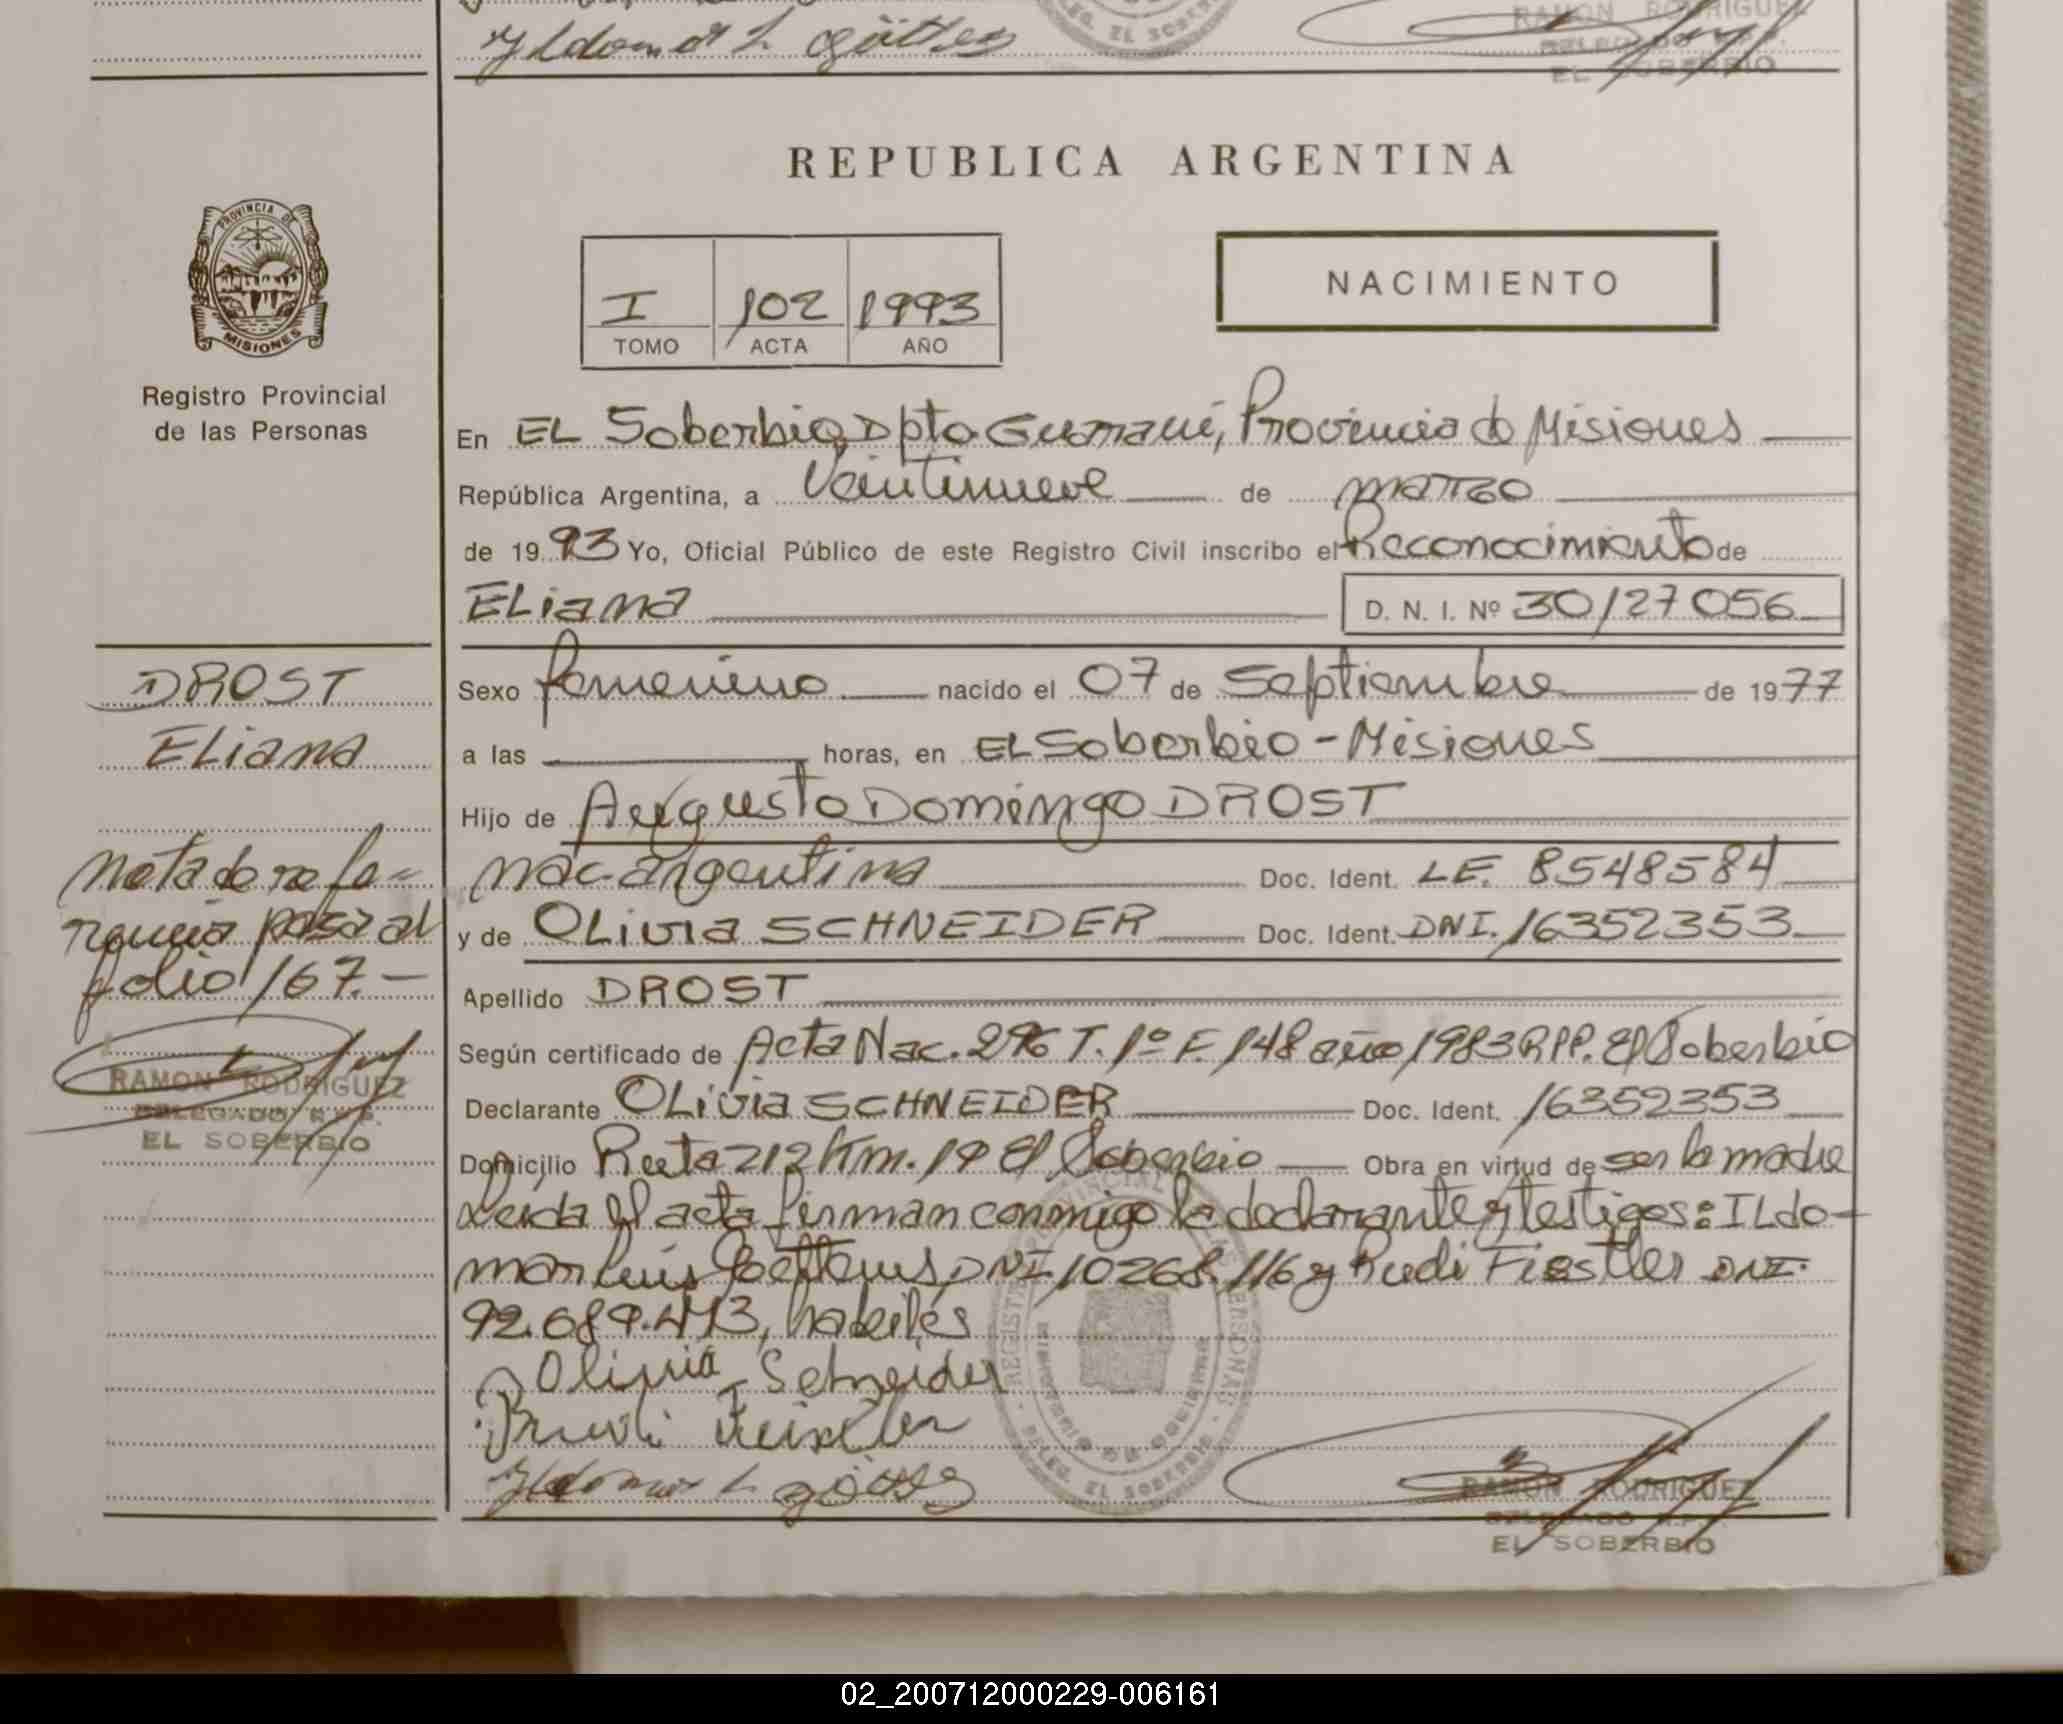 Yldomar L Götters
DELEG. EL SOBERBIO
RAMON RODRIGUEZ
DELEGADO R.P.P.
EL SOBERBIO
REPUBLICA ARGENTINA
PROVINCIA DE
MISIONES
Registro Provincial
de las Personas
I 102 1993
TOMO ACTA AÑO
NACIMIENTO
En EL Soberbio, Dpto. Guaraní, Provincia de Misiones
República Argentina, a Veintinueve de marzo
de 1993 Yo, Oficial Público de este Registro Civil inscribo el Reconocimiento de
ELiana D. N. I. Nº 30/27 056
DROST
ELiana
Nota de refe-
rencia pasa al
folio 167.-
RAMON RODRIGUEZ
DELEGADO R.P.P.
EL SOBERBIO
Sexo femenino nacido el 07 de Septiembre de 1977
a las horas, en EL Soberbio - Misiones
Hijo de Augusto Domingo DROST
nac. argentina Doc. Ident. LE. 8548584
y de OLivia SCHNEIDER Doc. Ident. DNI. 16352353
Apellido DROST
Según certificado de Acta Nac. 296 T. 1º F. 148 año 1983 RPP. El Soberbio
Declarante OLivia SCHNEIDER Doc. Ident. 16352353
Domicilio Ruta 212 Km. 19 El Soberbio Obra en virtud de ser la madre
Leida el acta firman conmigo la declarante y testigos: ILdo-
mar Luis DNI 10268.116 y Rudi DNI.
92.689.473, habiles
Olivia Schneider
Yldomar L Götters
REGISTRO PROVINCIAL DE LAS PERSONAS
DELEG. EL SOBERBIO
RAMON RODRIGUEZ
DELEGADO R.P.P.
EL SOBERBIO
02_200712000229-006161